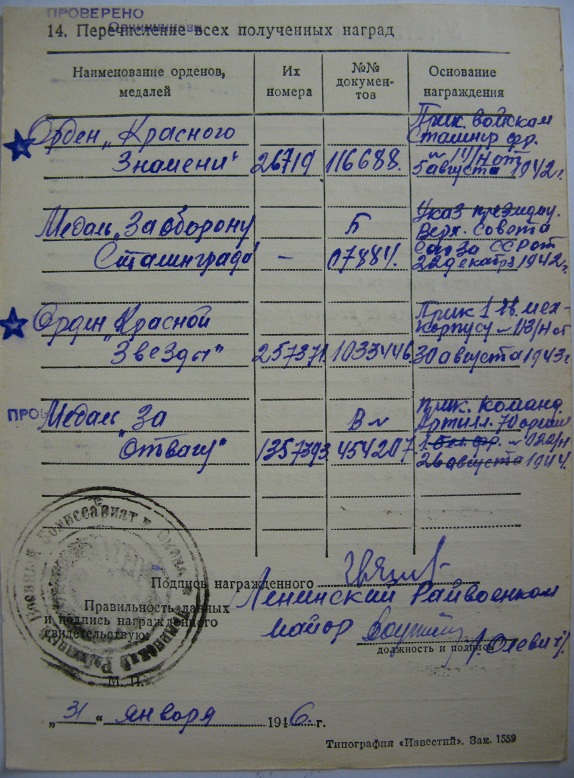 ПРОВЕРЕНО
14. Перечисление всех полученных наград
Наименование орденов, медалей
Их номера
№№ документов
Основание награждения
Орден „Красного
Знамени“ 26719 116688.
Прик. войскам
Сталингр фр.
5 августа 1942 г.
Медаль „За оборону
Сталинграда“ – Б 07884.
Указ президиу.
Верх. Совета
Союза ССР от
22 декабр 1942 г.
Орден „Красной
Звезды“ 257371 1033446
Прик 1 гв. мех-
корпусу
30 августа 1943 г
Медаль „За
Отвагу“ 1357393 454207
Прик. команд.
Артилл. 70 армии
26 августа 1944.
Подпись награжденного
Правильность данных
и подпись награжденного
свидетельствую:
Ленинский Райвоенком
майор
должность и подпись
М. П.
„ 31 “ января 1946 г.
Типография «Известий». Зак. 1559